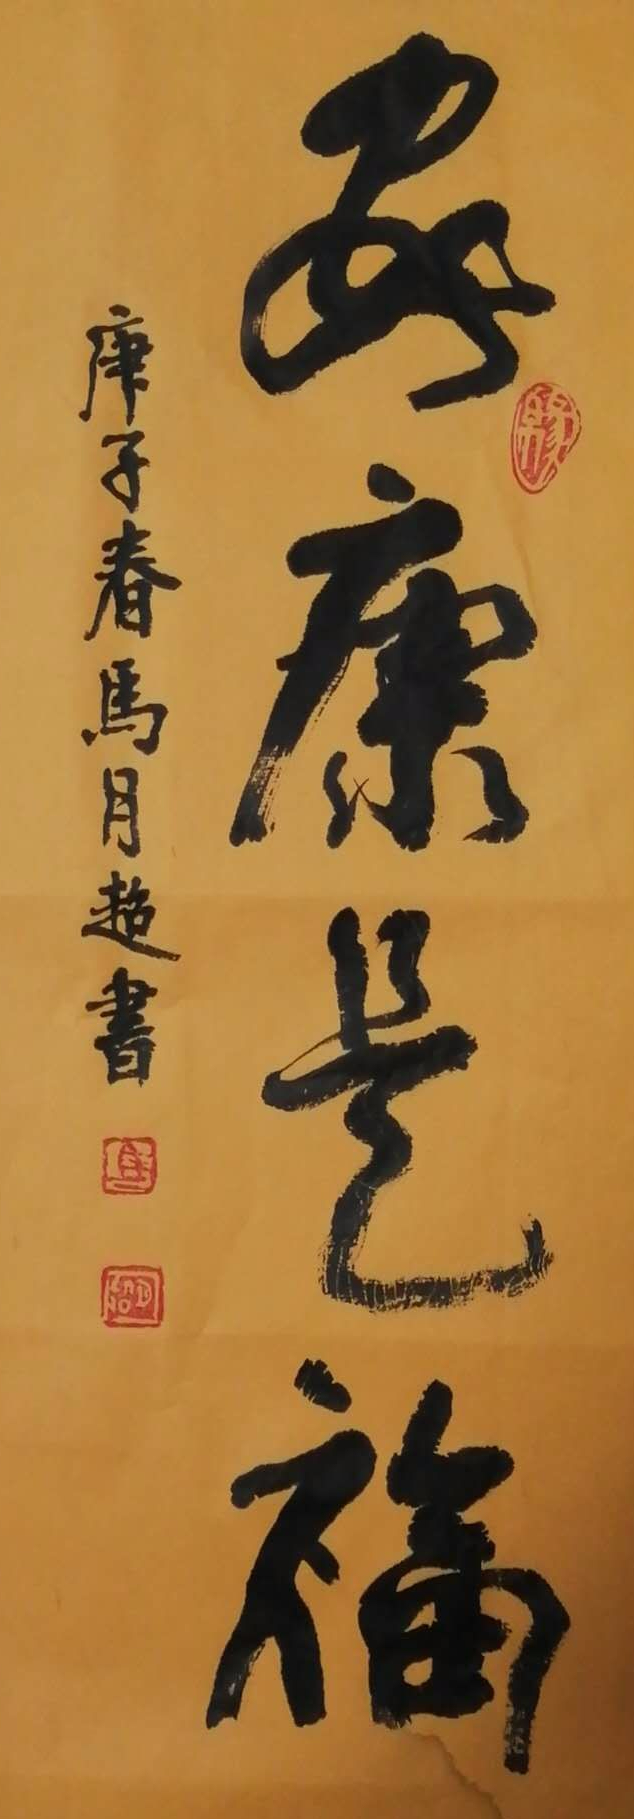 安康是福
庚子春馬月超書